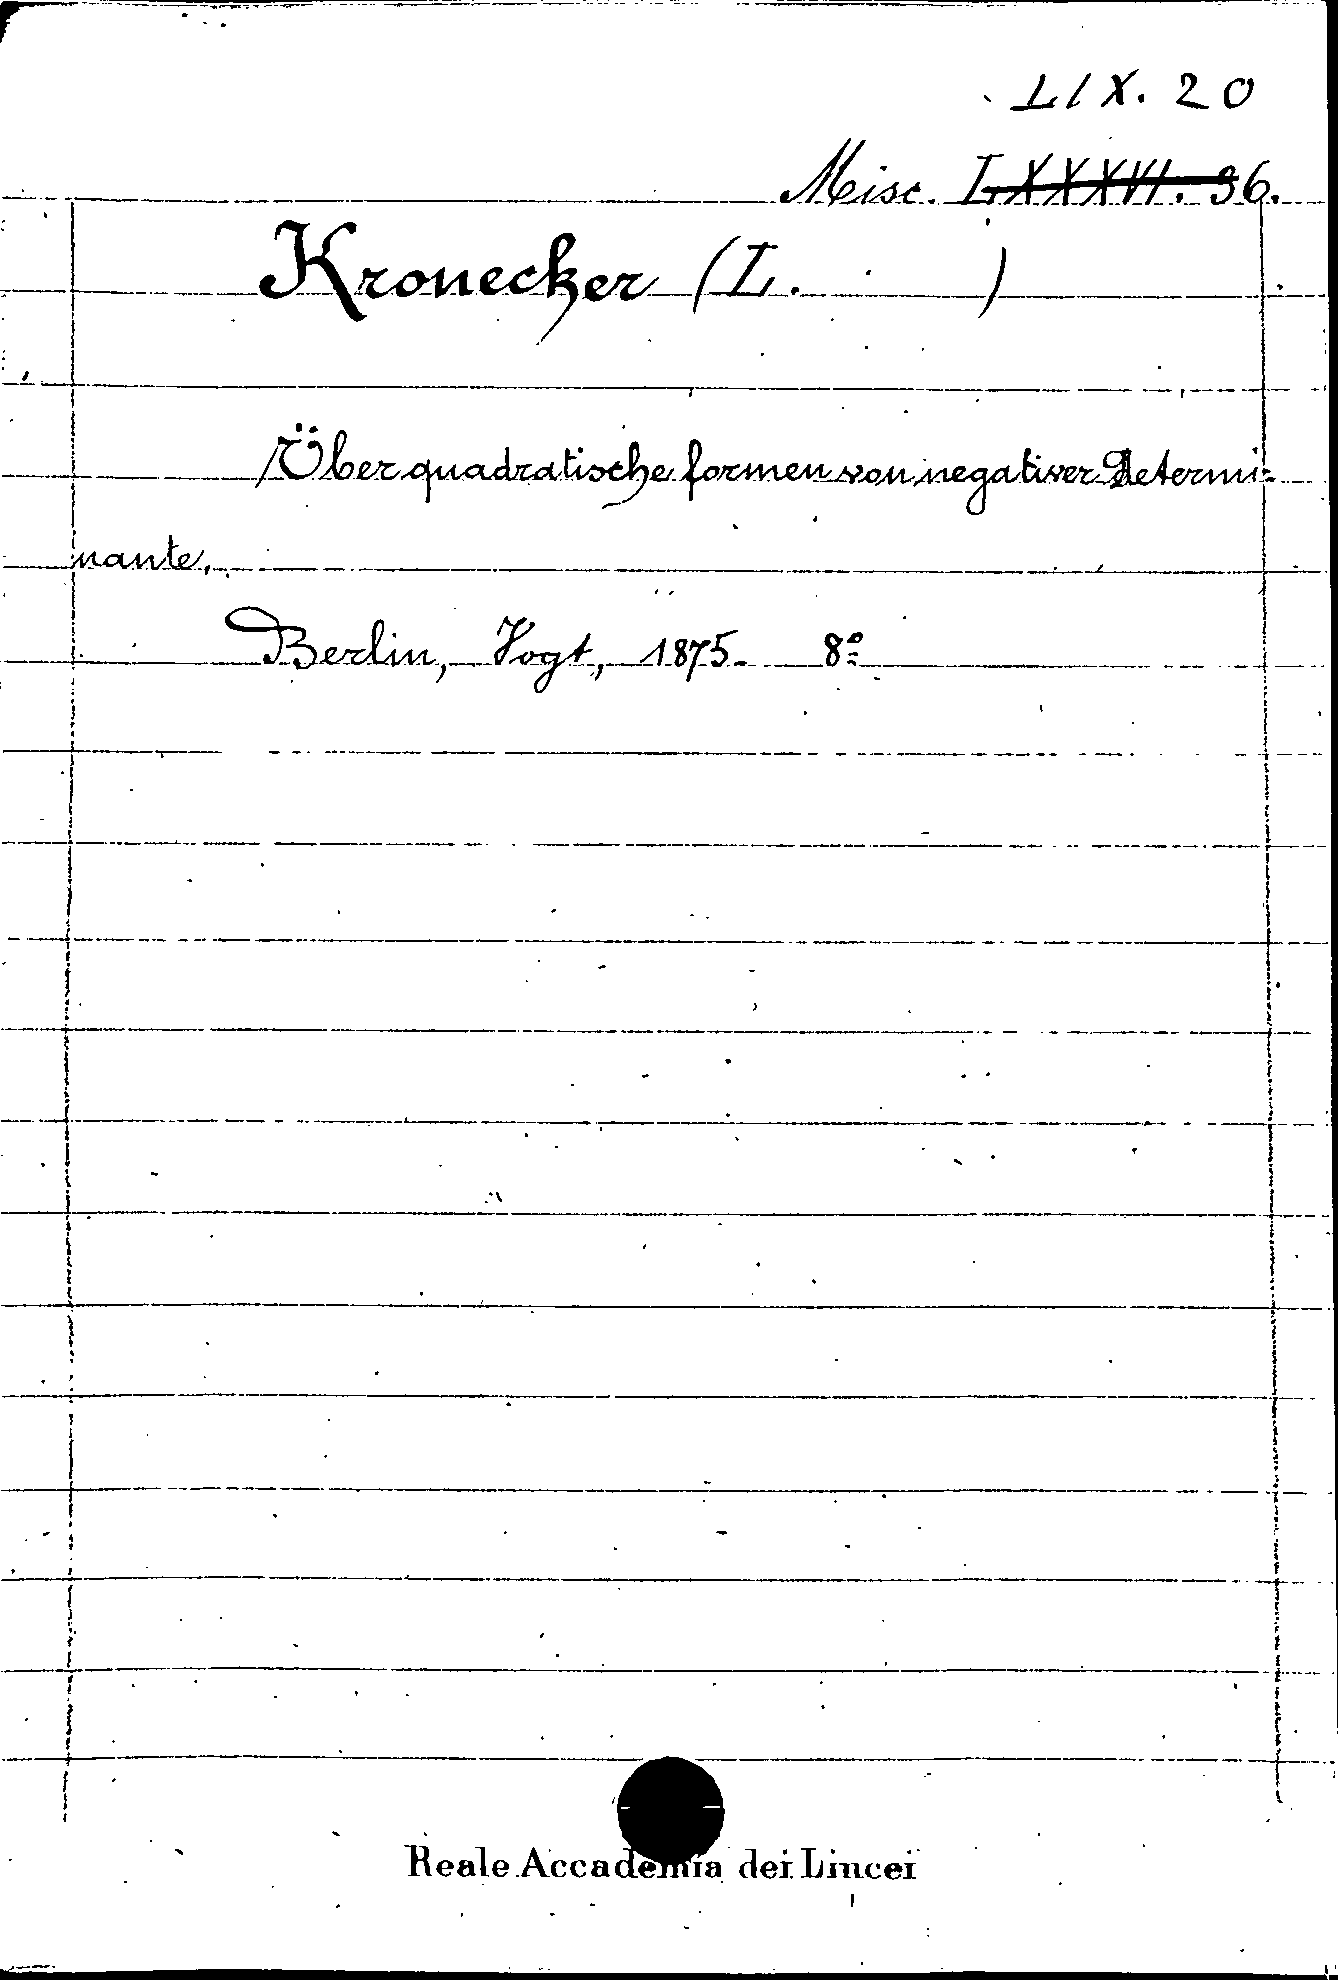 LIX. 20
Misc. LXXXVI. 36.
Kronecker (L. )
Über quadratische formen von negativer Determi-
nante.
Berlin, Vogt, 1875. 8º
Reale Accademia dei Lincei